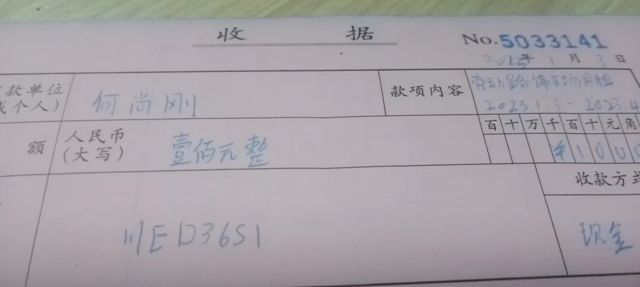 收 据
No.5033141
2023年1月3日
款单位
或个人)
何尚刚
款项内容
劳动路停车场月租
2023.1.3-2023.
额
人民币
(大写)
壹佰元整
百十万千百十元角
¥1000
收款方式
川ED36S1
现金